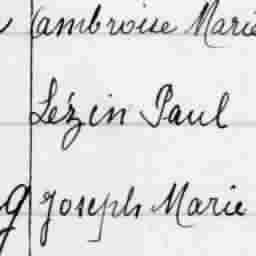 (ambroise Marie
Lézin Paul
g Joseph Marie